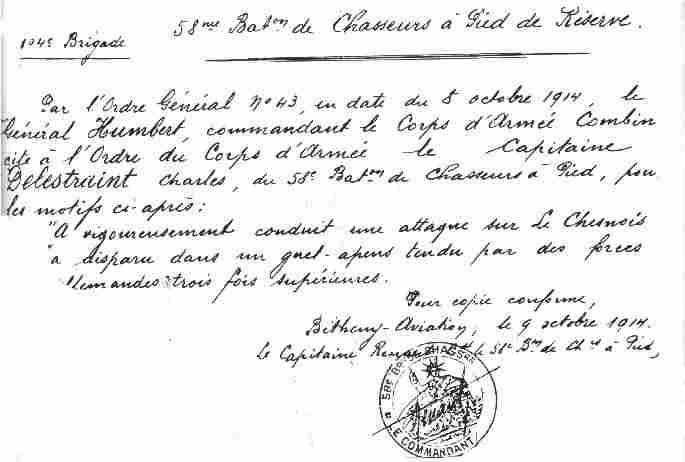 58me Baton de Chasseurs à Pied de Réserve.
104e Brigade
Par l'Ordre Général No 43, en date du 8 octobre 1914, le
Général Humbert, commandant le Corps d'Armée Combin
cite à l'Ordre du Corps d'Armée le Capitaine
Delestraint Charles, du 58e Baton de Chasseurs à Pied, pou
les motifs ci-après:
"A vigoureusement conduit une attaque sur Le Chesnois
"a disparu dans un guet-apens tendu par des forces
llemandes trois fois supérieures.
Pour copie conforme,
Bétheny-Aviation, le 9 octobre 1914.
Le Capitaine le 58e Bon de Ch à Pied,
58e CHASSEURS
LE COMMANDANT